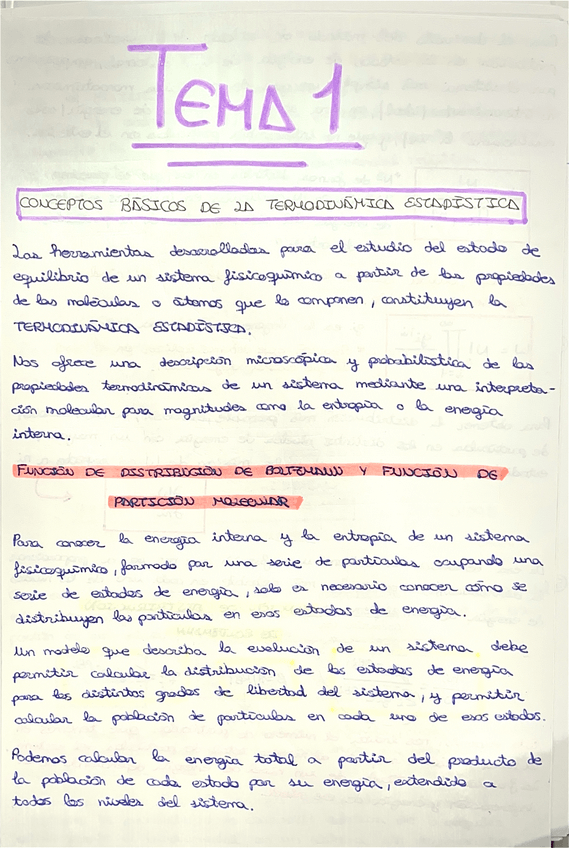 TEMA 1
CONCEPTOS BÁSICOS DE LA TERMODINÁMICA ESTADÍSTICA
Las herramientas desarrolladas para el estudio del estado de
equilibrio de un sistema fisicoquímico a partir de las propiedades
de las moléculas o átomos que lo componen, constituyen la
TERMODINÁMICA ESTADÍSTICA.
Nos ofrece una descripción microscópica y probabilística de las
propiedades termodinámicas de un sistema mediante una interpreta-
ción molecular para magnitudes como la entropía o la energía
interna.
FUNCIÓN DE DISTRIBUCIÓN DE BOLTZMANN Y FUNCIÓN DE
PARTICIÓN MOLECULAR
Para conocer la energía interna y la entropía de un sistema
fisicoquímico, formado por una serie de partículas ocupando una
serie de estados de energía, solo es necesario conocer cómo se
distribuyen las partículas en esos estados de energía.
Un modelo que describa la evolución de un sistema debe
permitir calcular la distribución de los estados de energía
para los distintos grados de libertad del sistema, y permitir
calcular la población de partículas en cada uno de esos estados.
Podemos calcular la energía total a partir del producto de
la población de cada estado por su energía, extendido a
todos los niveles del sistema.